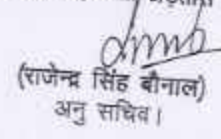 (राजेन्द्र सिंह बौनाल)
अनु सचिव।